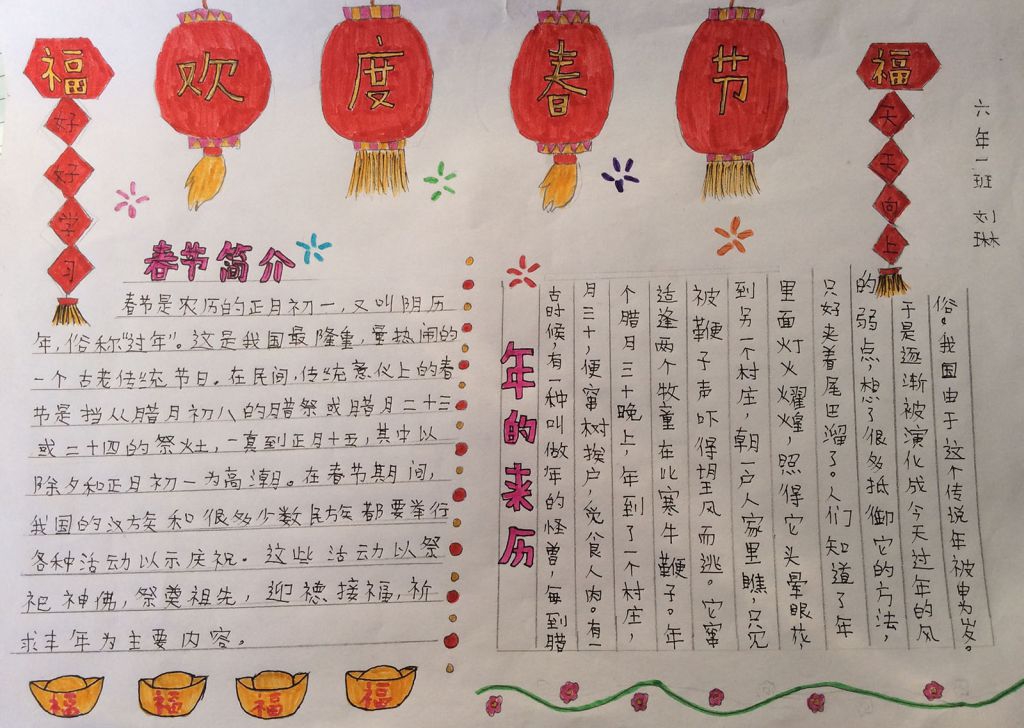 欢度春节
福
好好学习
福
天天向上
六年一班 刘琳
春节简介
春节是农历的正月初一,又叫阴历
年,俗称“过年”。这是我国最隆重,最热闹的
一个古老传统节日。在民间,传统意义上的春
节是指从腊月初八的腊祭或腊月二十三
或二十四的祭灶,一直到正月十五,其中以
除夕和正月初一为高潮。在春节期间,
我国的汉族和很多少数民族都要举行
各种活动以示庆祝。这些活动以祭
祀神佛,祭奠祖先,迎德接福,祈
求丰年为主要内容。
年的来历
古时候,有一种叫做年的怪兽,每到腊
月三十,便窜树挨户,觅食人肉。有一
个腊月三十晚上,年到了一个村庄,
适逢两个牧童在比寒牛鞭子。年
被鞭子声吓得望风而逃。它窜
到另一个村庄 朝一户人家里瞧,只见
里面灯火耀煌,照得它头晕眼花,
只好夹着尾巴溜了。人们知道了年
的弱点,想了很多抵御它的方法,
于是逐渐被演化成今天过年的风
俗。我国由于这个传说年被申为岁。
福
福
福
福